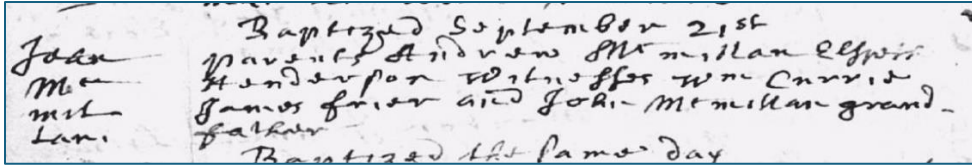 Baptized September 21st
Jean parents Andrew Mcmillan
Mc Henderson witnesses wm Currie
mil James frier and John Mcmillan grand-
lan. father
Baptized the same day